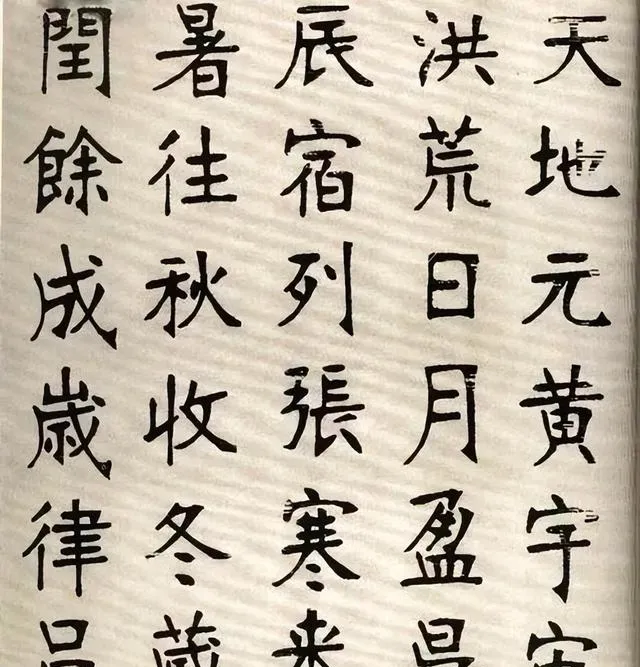 天地元黄宇
洪荒日月盈
辰宿列張寒来
暑往秋收冬
閏餘成歳律